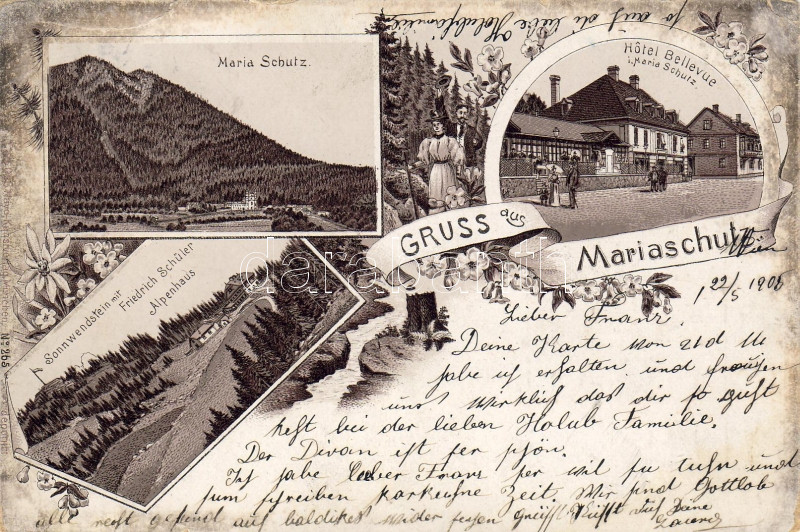 Maria Schutz.
Hôtel Bellevue
i. Maria Schutz.
GRUSS aus
Mariaschutz
Sonnwendstein mit
Friedrich Schüler
Alpenhaus
darabanth.com
No 265
22/5 1900
Lieber Franz,
Deine Karte von 21 d M
habe ich erhalten, und freuzen
uns wirklich das dir so guht
geht bei der lieben Holub Familie.
Der Divan ist ser schön.
Ich habe lieber Franz ser vil zu tuhn und
zum schreiben gar keine Zeit. Wir sind Gottlob
alle recht auf baldiges wieder sehen Grüßt Küßt